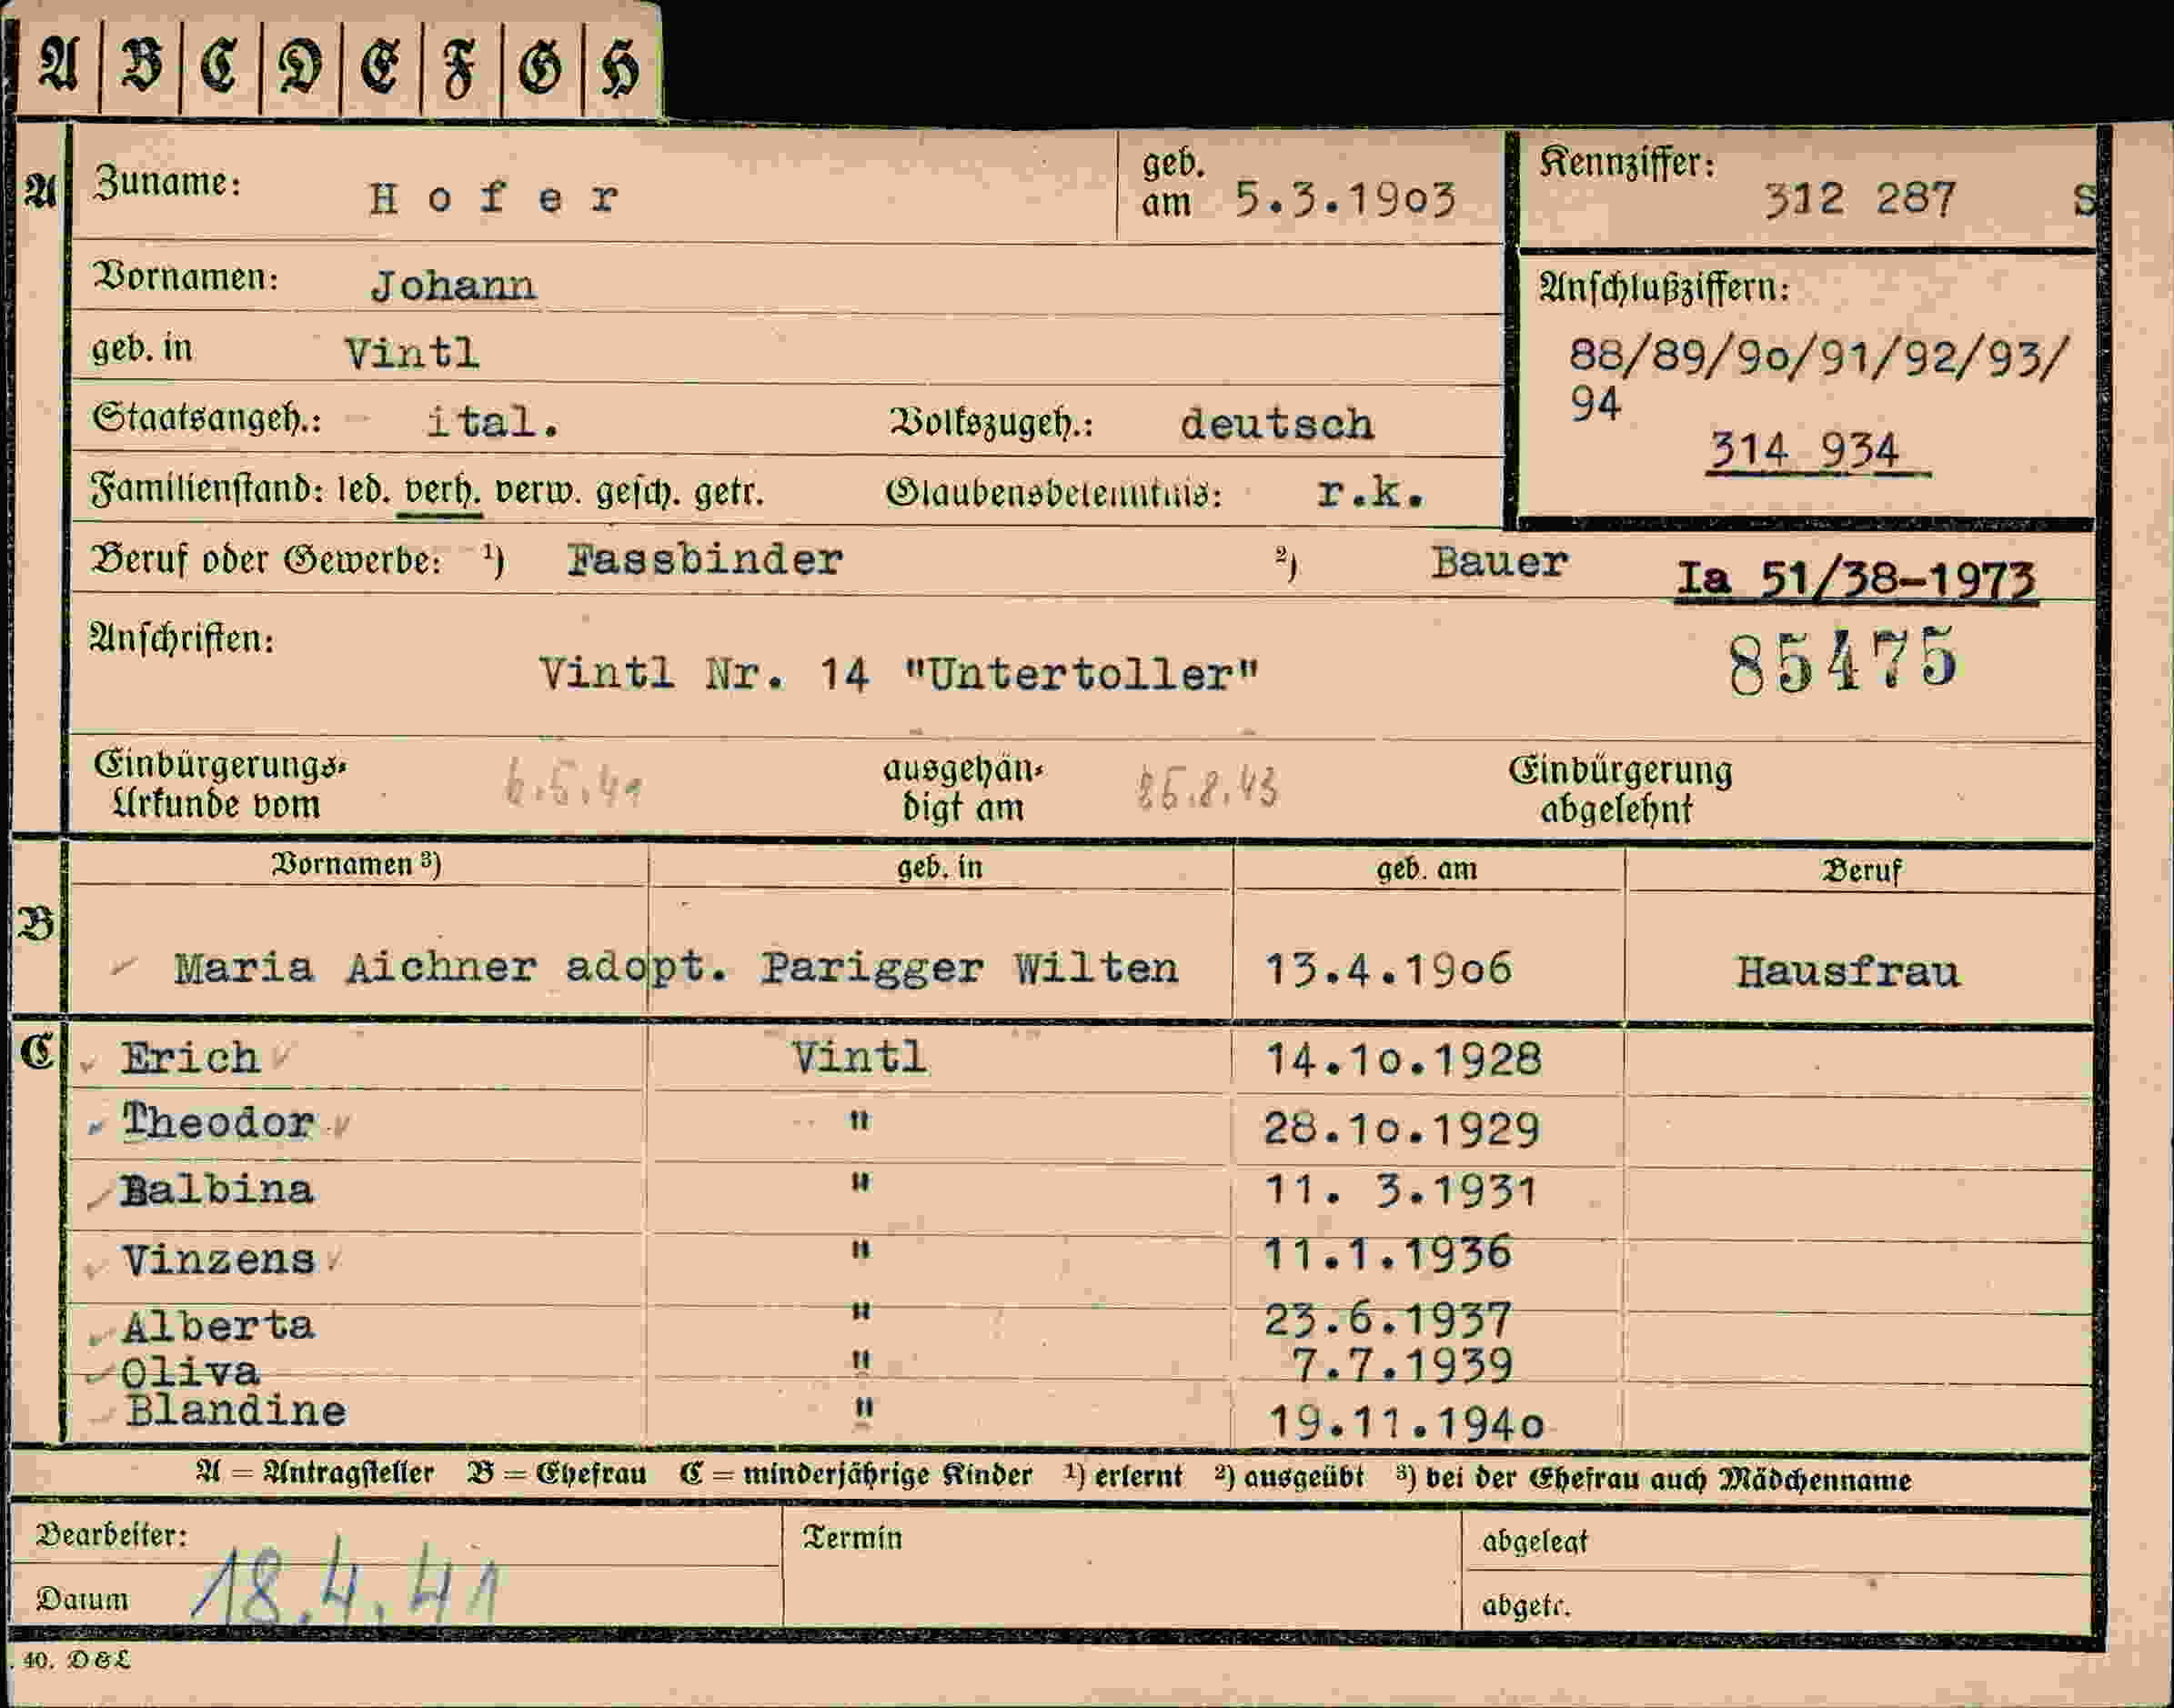 A B C D E F G H
A Zuname: Hofer geb. am 5.3.1903 Kennziffer: 312 287 S
Vornamen: Johann Anschlußziffern:
geb. in Vintl 88/89/90/91/92/93/
94
Staatsangeh.: ital. Volkszugeh.: deutsch 314 934
Familienstand: led. verh. verw. gesch. getr. Glaubensbekenntnis: r.k.
Beruf oder Gewerbe: ¹) Fassbinder ²) Bauer Ia 51/38-1973
Anschriften: Vintl Nr. 14 "Untertoller" 85475
Einbürgerungs- ausgehän- Einbürgerung
Urkunde vom 6.5.41 digt am 25.8.43 abgelehnt
Vornamen ³) geb. in geb. am Beruf
B Maria Aichner adopt. Parigger Wilten 13.4.1906 Hausfrau
C Erich Vintl 14.10.1928
Theodor " 28.10.1929
Balbina " 11. 3.1931
Vinzens " 11.1.1936
Alberta " 23.6.1937
Oliva " 7.7.1939
Blandine " 19.11.1940
A = Antragsteller B = Ehefrau C = minderjährige Kinder ¹) erlernt ²) ausgeübt ³) bei der Ehefrau auch Mädchenname
Bearbeiter: Termin abgelegt
Datum 18.4.41 abgetr.
40. D & L